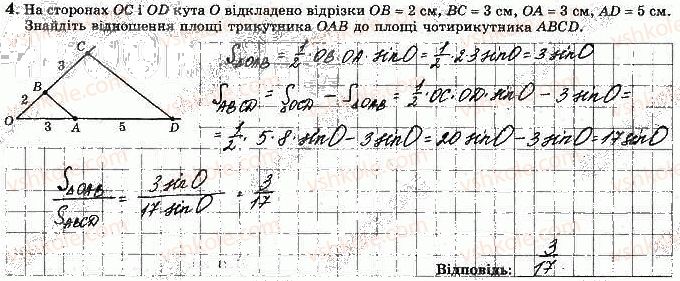 4. На сторонах OC і OD кута O відкладено відрізки OB = 2 см, BC = 3 см, OA = 3 см, AD = 5 см.
Знайдіть відношення площі трикутника OAB до площі чотирикутника ABCD.
C
3
B
2
O 3 A 5 D
S△OAB = 1/2 · OB · OA · sin O = 1/2 · 2 · 3 sin O = 3 sin O
S ABCD = S OCD − S△OAB = 1/2 · OC · OD · sin O − 3 sin O =
= 1/2 · 5 · 8 · sin O − 3 sin O = 20 sin O − 3 sin O = 17 sin O
S△OAB / S ABCD = 3 sin O / 17 sin O = 3/17
Відповідь: 3/17.